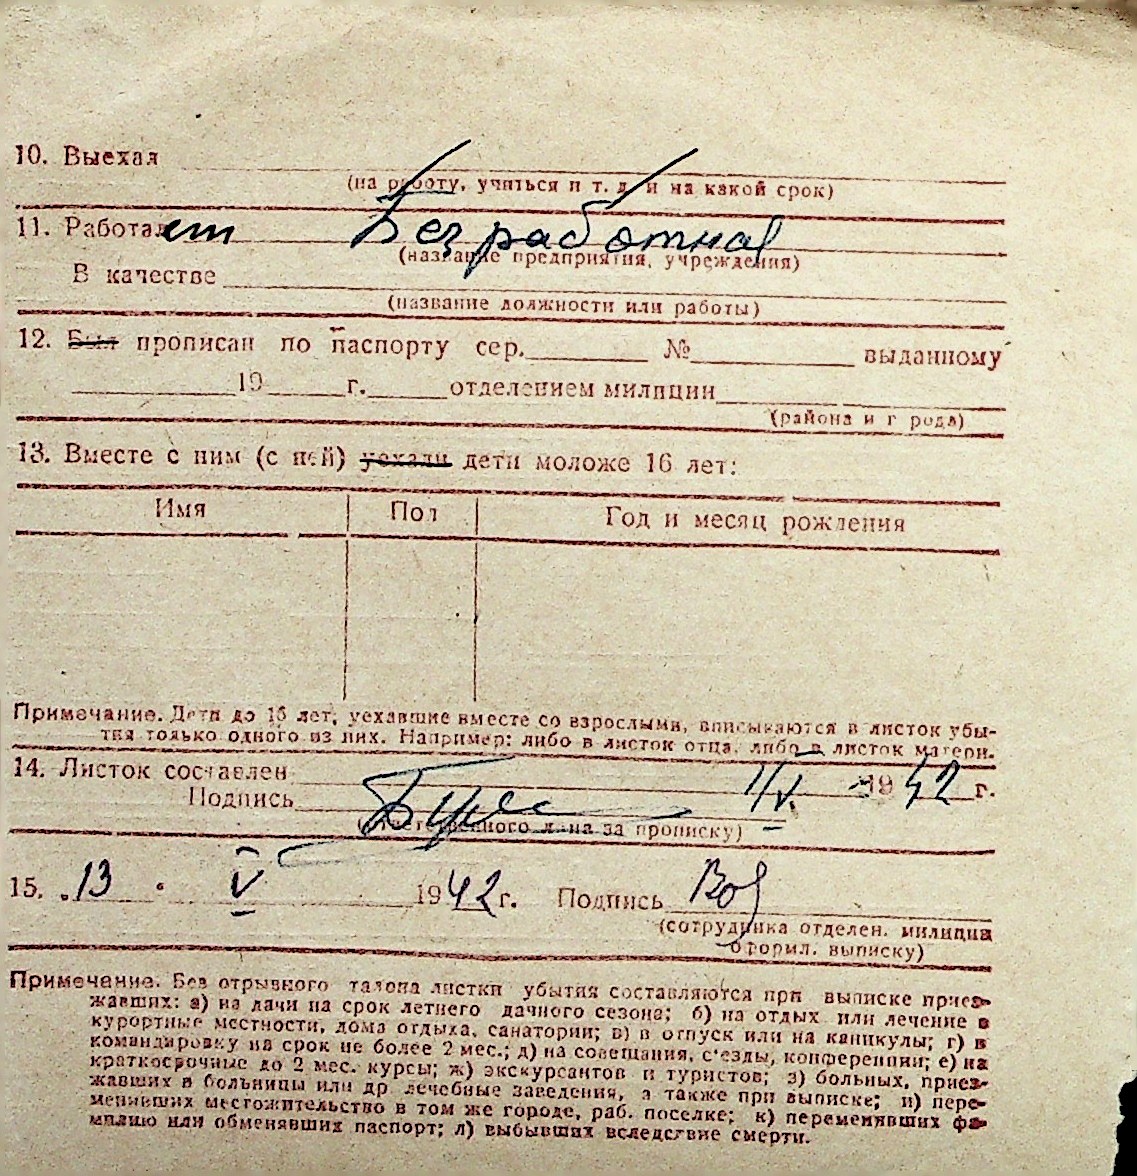 10. Выехал
(на работу, учиться и т. д. и на какой срок)
11. Работает Безработная
(название предприятия, учреждения)
В качестве
(название должности или работы)
12. Был прописан по паспорту сер. № выданному
19 г. отделением милиции
(района и города)
13. Вместе с ним (с ней) уехали дети моложе 16 лет:
Имя Пол Год и месяц рождения
Примечание. Дети до 16 лет, уехавшие вместе со взрослыми, вписываются в листок убы-
тия только одного из них. Например: либо в листок отца, либо в листок матери.
14. Листок составлен 1/V. 1942 г.
Подпись
(ответственного лица за прописку)
15. 13 V 1942 г. Подпись
(сотрудника отделен. милиции
оформл. выписку)
Примечание. Без отрывного талона листки убытия составляются при выписке приез-
жавших: а) на дачи на срок летнего дачного сезона; б) на отдых или лечение в
курортные местности, дома отдыха, санатории; в) в отпуск или на каникулы; г) в
командировку на срок не более 2 мес.; д) на совещания, с'езды, конференции; е) на
краткосрочные до 2 мес. курсы; ж) экскурсантов и туристов; з) больных, приез-
жавших в больницы или др лечебные заведения, а также при выписке; и) пере-
менивших местожительство в том же городе, раб. поселке; к) переменявших фа-
милию или обменявших паспорт; л) выбывших вследствие смерти.